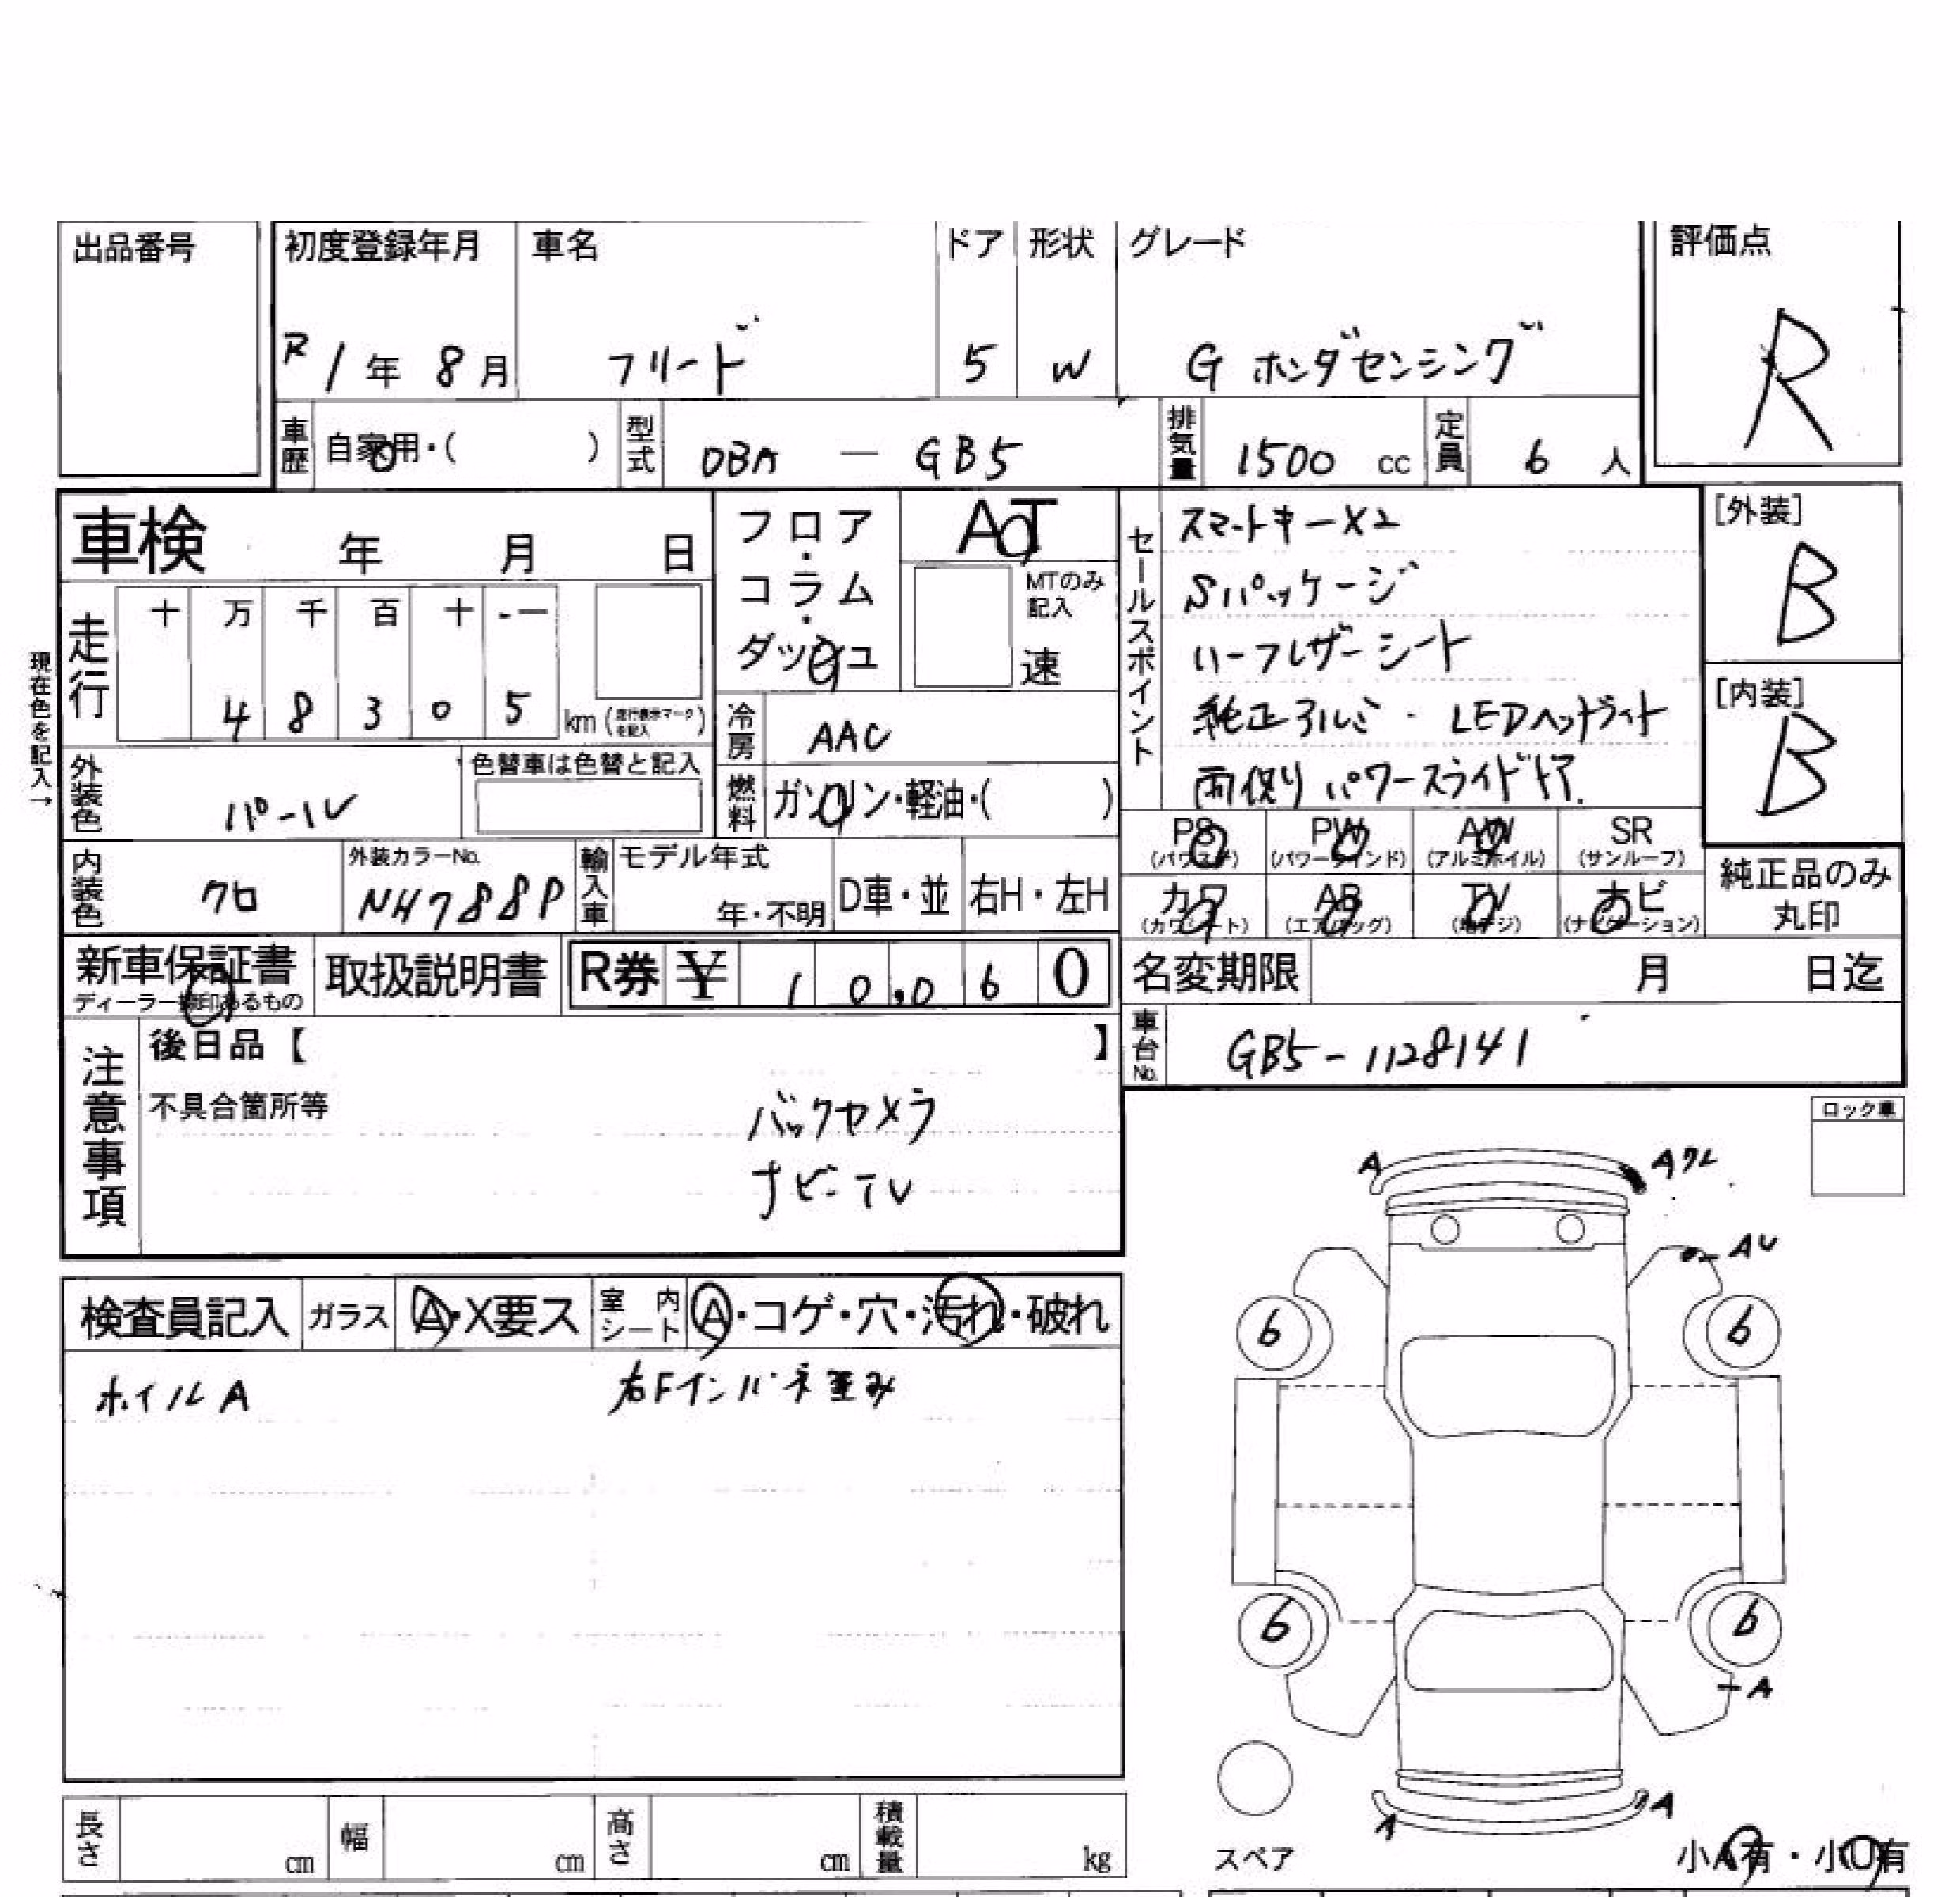 出品番号
初度登録年月 車名 ドア 形状 グレード 評価点
R1年 8月 フリード 5 W G ホンダセンシング R
車歴 自家用・( ) 型式 DBA — GB5 排気量 1500 cc 定員 6 人
車検 年 月 日
フロア・コラム・ダッシュ
AT
MTのみ記入
速
現在色を記入→
走行 十 万 千 百 十 一
4 8 3 0 5 km (走行表示マークを記入)
冷房 AAC
外装色 パール 色替車は色替と記入
燃料 ガソリン・軽油・( )
内装色 クロ 外装カラーNo. NH788P 輸入車 モデル年式 年・不明 D車・並 右H・左H
セールスポイント
スマートキーX2
Sパッケージ
ハーフレザーシート
純正アルミ・LEDヘッドライト
両側パワースライドドア
[外装]
B
[内装]
B
PS (パワステ) PW (パワーウインド) AW (アルミホイル) SR (サンルーフ)
カワ (カワシート) AB (エアバッグ) TV (地デジ) ナビ (ナビゲーション)
純正品のみ
丸印
新車保証書 取扱説明書 R券 ¥ 1 0,0 6 0
ディーラー捺印あるもの
名変期限 月 日迄
車台No. GB5-1128141
注意事項
後日品【 】
不具合箇所等
バックカメラ
ナビ・TV
ロック車
A Aワレ
AU
6 6
6 6
A
A A
検査員記入 ガラス A・X要ス 室内シート A・コゲ・穴・汚れ・破れ
ホイルA 右Fインパネ歪み
スペア 小A有・小U有
長さ cm 幅 cm 高さ cm 積載量 kg